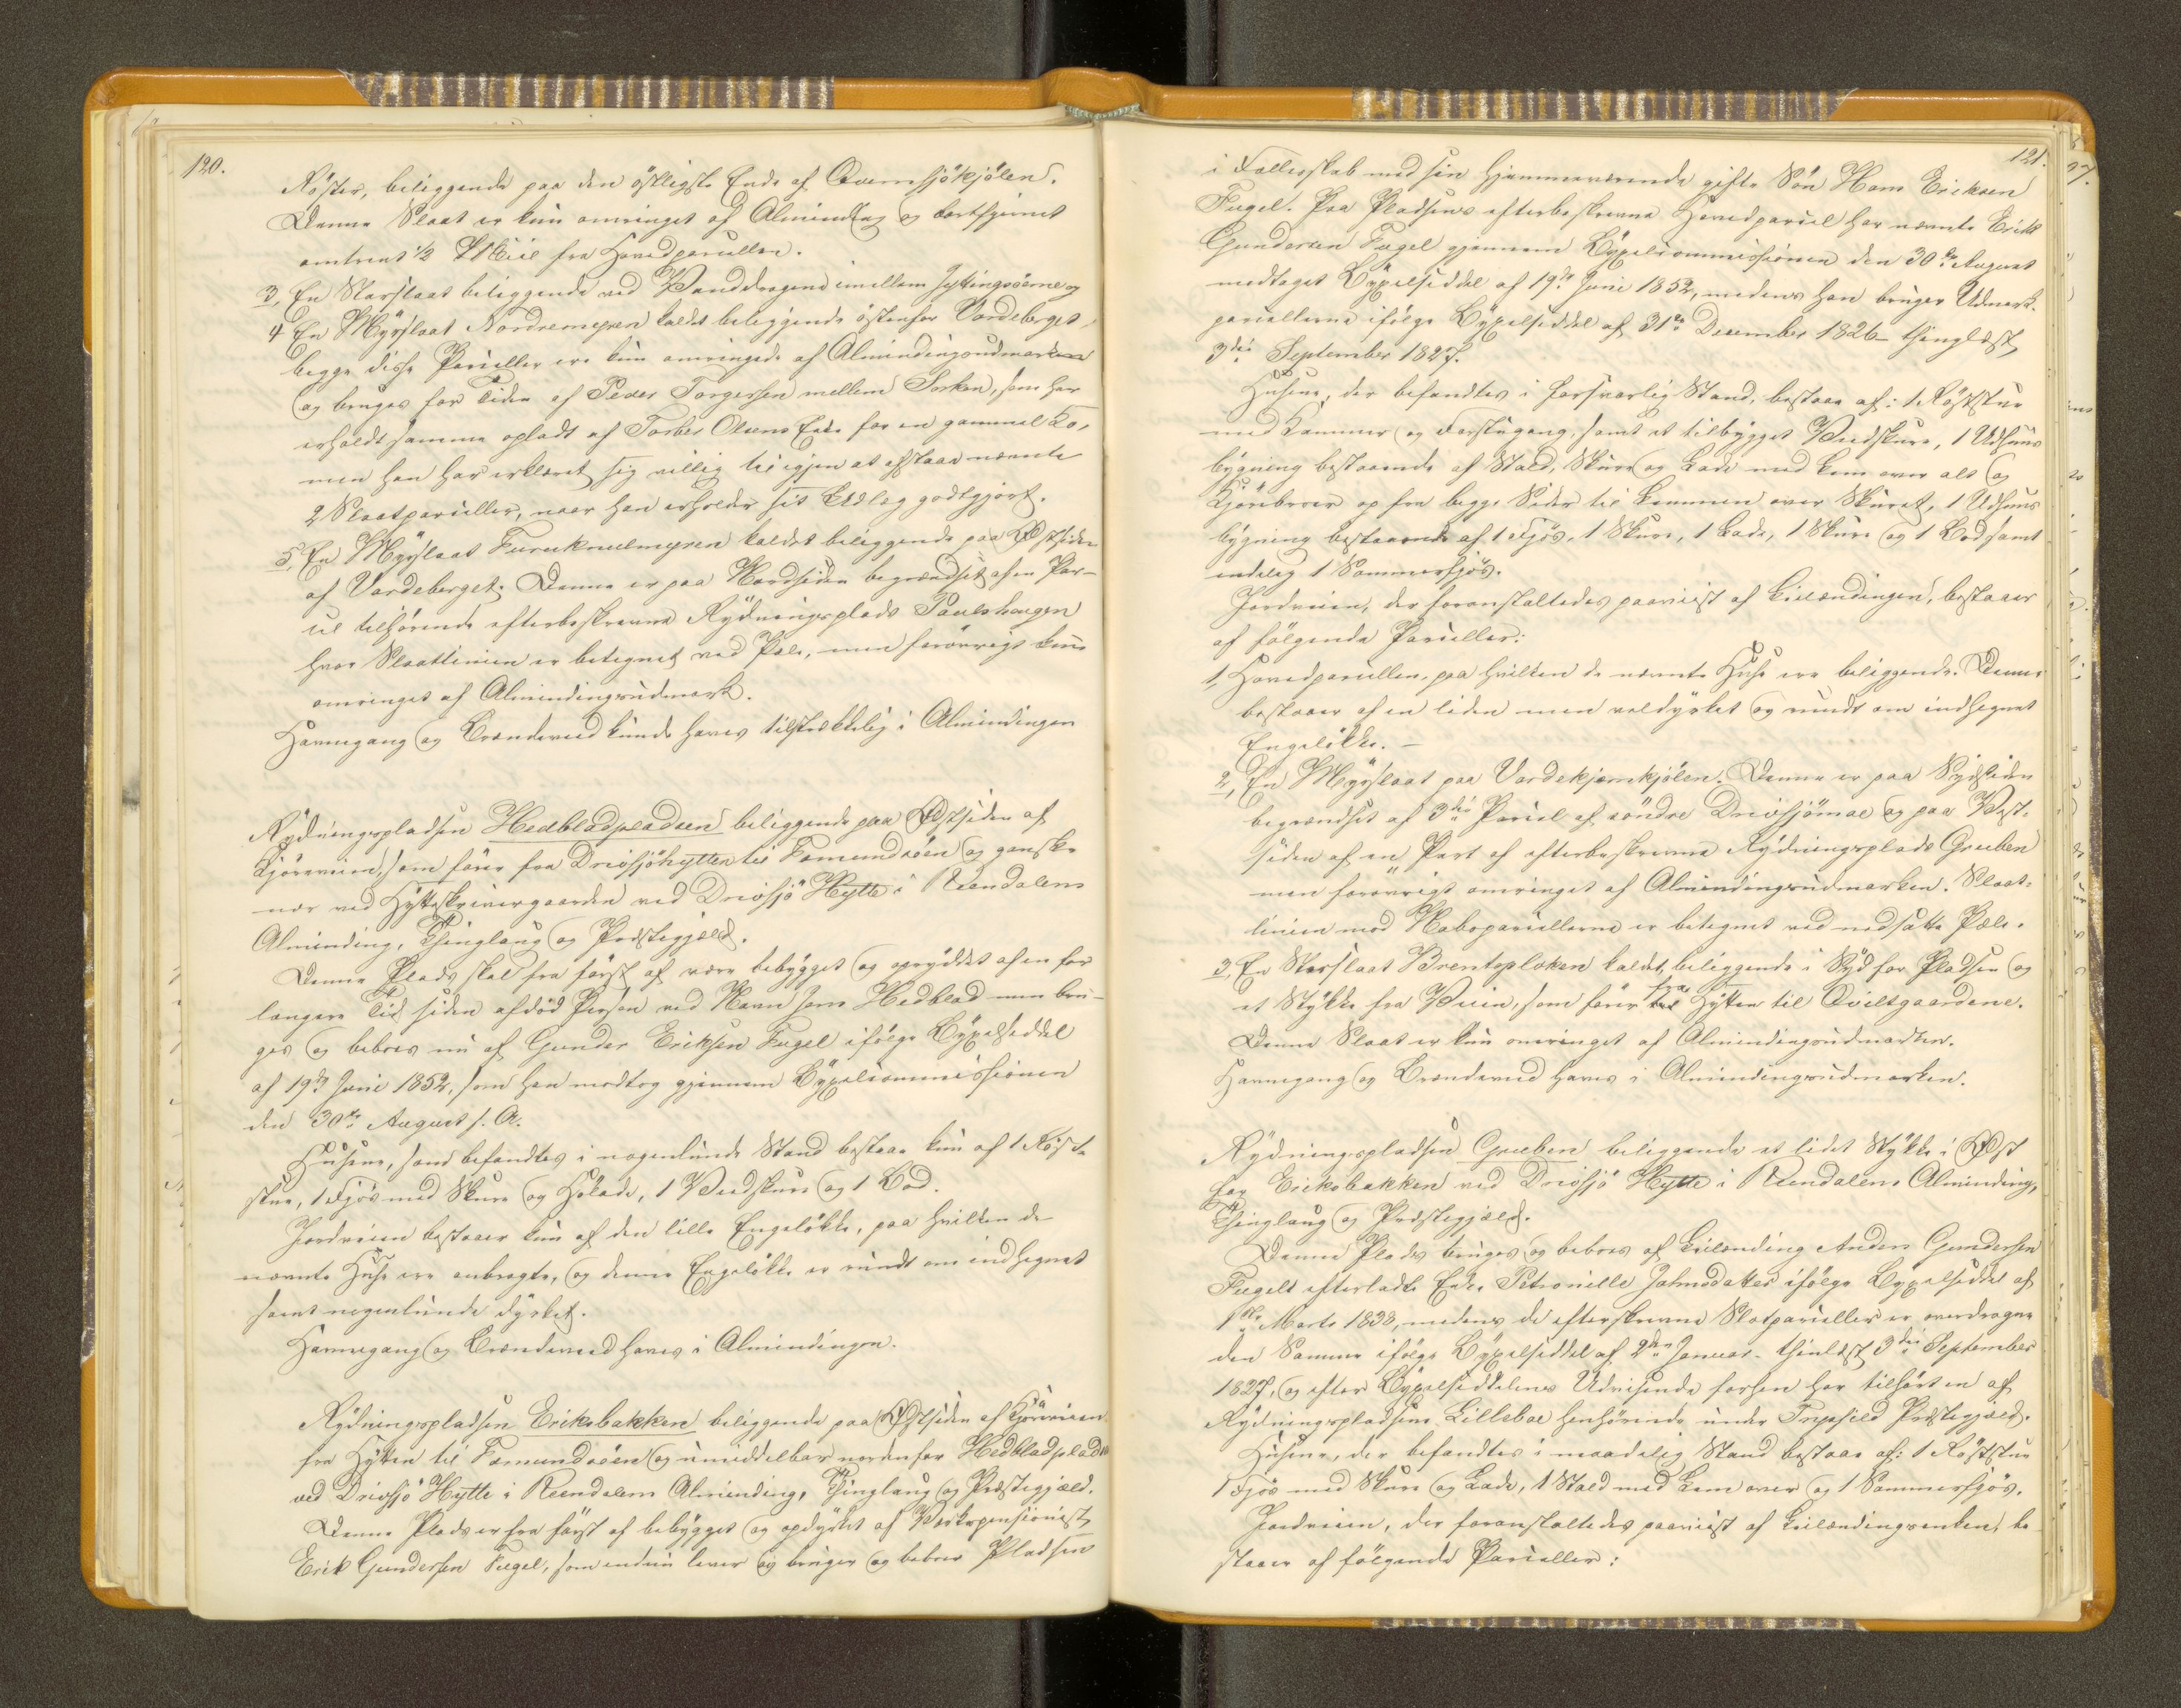 120.
Röster, beliggende paa den östligste Ende af Qvernsjökjölen.
Denne Slaat er kun omringet af Alminding og bortfjernet
omtrent 1/2 Miil fra Hovedparcellen.
3, En Starslaat beliggende ved Vanddragene imellem Jyltingsöerne og
4 En Myrslaat Nordremyren kaldet beliggende östenfor Vardeberget,
begge disse Parceller ere kun omringede af Almindingsudmarken
og bruges for Tiden af Peder Torgersen mellem Sorken, som har
erholdt samme opladt af Torber Olsens Enke for en gammel Ko,
men han har erklæret sig villig til igjen at afstaae nævnte
2 Slaatparceller, naar han erholder sit Udlæg godtgjort.
5, En Myrslaat Furuknulmyren kaldet beliggende paa Østsiden
af Vardeberget. Denne er paa Nordsiden begrændset af en Par-
cel tilhörende efterbeskrevne Rydningsplads Paulshaugen
hvor Slaatlinien er betegnet ved Pæle, men forövrigt kun
omringet af Almindingsudmark.
Havnegang og Brændeved kunde haves tilstrækkelig i Almindingen
Rydningspladsen Hedbladpladsen beliggende paa Østsiden af
Kjöreveien, som förer fra Drevsjöhytten til Fæmundsöen og ganske
nær ved Hytteskrivergaarden ved Drevsjö Hytte i Rendalens
Alminding, Thinglaug og Præstegjæld.
Denne Plads skal fra först af være bebygget og opryddet af en for
længere Tid siden afdöd Person ved Navn Jens Hedblad men bru-
ges og beboes nu af Gunder Eriksen Fugel ifölge Bygselseddel
af 19de Juni 1852, som han modtog gjennem Bygselcommissionen
den 30te August s. A.
Husene, som befandtes i nogenlunde Stand bestaae kun af 1 Röst-
stue, 1 Fjös med Skure og Hölade, 1 Vedskure og 1 Bod.
Jordveien bestaaer kun af den lille Engelökke, paa hvilken de
nævnte Huse ere anbragte, og denne Engelökke er rundt om indhegnet
samt nogenlunde dyrket.
Havnegang og Brændeved haves i Almindingen.
Rydningspladsen Eriksbakken beliggende paa Østsiden af Kjöreveien
fra Hytten til Fæmundsöen og umiddelbar nordenfor Hedbladpladsen
ved Drevsjö Hytte i Rendalens Alminding, Thinglaug og Præstegjæld.
Denne Plads er fra först af bebygget og opdyrket af Værkspensionist
Erik Gundersen Fugel, som endnu lever og bruger og beboer Pladsen
121.
i Fællesskab med sin hjemmeværende gifte Sön Hans Eriksen
Fugel. Paa Pladsens efterbeskrevne Hovedparcel har nævnte Erik
Gundersen Fugel gjennem Bygselcommissionen den 30te August
modtaget Bygselseddel af 19de Juni 1852, medens han bruger Udmark-
parcellerne ifölge Bygselseddel af 31te December 1826 thinglæst
3die September 1827.
Husene, der befandtes i forsvarlig Stand, bestaae af: 1 Röststue
med Kammer og Forstugang, samt et tilbygget Vedskure, 1 Udhuus
bygning bestaaende af Stald, Skure og Lade med Lem over alt og
Kjörebroer op fra begge Sider til Lemmen over Skuret, 1 Udhuus
bygning bestaaende af 1 Fjös, 1 Skure, 1 Lade, 1 Skure og 1 Bod samt
endelig 1 Sommerfjös.
Jordveien, der foranstaltedes paaviist af Leilændingen, bestaaer
af fölgende Parceller:
1, Hovedparcellen, paa hvilken de nævnte Huse ere beliggende. Denne
bestaaer af en liden men veldyrket og rundt om indhegnet
Engelökke. –
2, En Myrslaat paa Vardekjernkjölen. Denne er paa Sydsiden
begrændset af 3die Parcel af söndre Drevsjömoe og paa Vest-
siden af en Part af efterbeskrevne Rydningsplads Gruben
men forövrigt omringet af Almindingsudmarken. Slaat-
linien mod Naboparcellerne er betegnet ved nedsatte Pæle.
3, En Starslaat Brentæploken kaldet, beliggende i Syd for Pladsen og
et Stykke fra Veien, som förer fra Hytten til Qviltgaardene.
Denne Slaat er kun omringet af Almindingsudmarken.
Havnegang og Brændeved haves i Almindingsudmarken.
Rydningspladsen Gruben beliggende et lidet Stykke i Øst
for Eriksbakken ved Drevsjö Hytte i Rendalens Alminding,
Thinglaug og Præstegjæld.
Denne Plads bruges og beboes af Leilænding Anders Gundersen
Fugels efterladte Enke Petronille Johnsdatter ifölge Bygselseddel af
1ste Marts 1838, medens de efterskrevne Slotparceller er overdragne
den Samme ifölge Bygselseddel af 2den Januar thinlæst 3die September
1827, og efter Bygselseddelens Udvisende forhen har tilhört en af
Rydningspladsene Lilleboe henhörende under Trysild Præstegjæld.
Husene, der befandtes i maadelig Stand bestaae af: 1 Röststue
1 Fjös med Skure og Lade, 1 Stald med Lem over og 1 Sommerfjös.
Jordveien, der foranstaltedes paaviist af Leilændingsenken, be
staaer af fölgende Parceller: